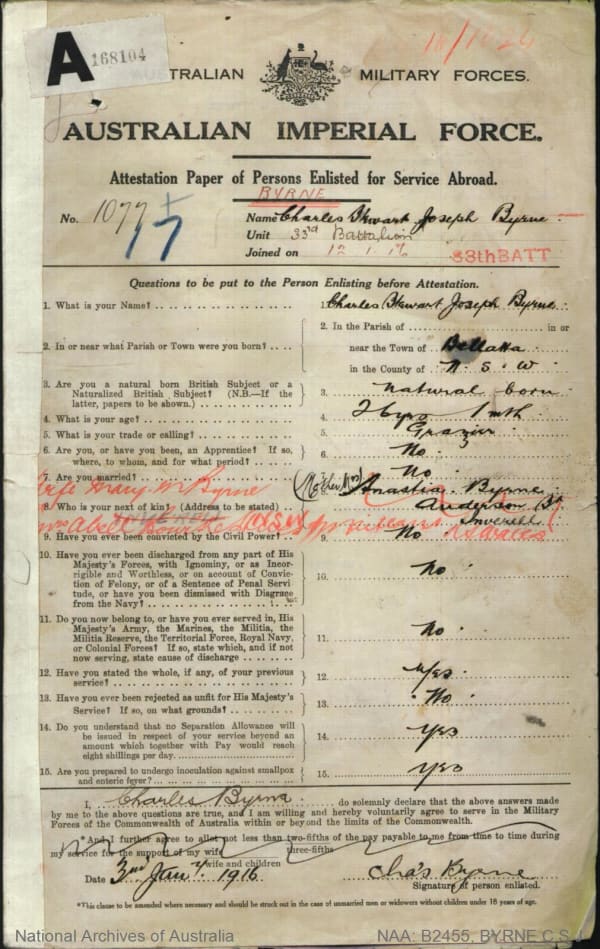 A 168104
18/10.26
AUSTRALIAN MILITARY FORCES.
AUSTRALIAN IMPERIAL FORCE.
Attestation Paper of Persons Enlisted for Service Abroad.
BYRNE
No. 1077 Name Charles Stewart Joseph Byrne
Unit 33rd Battalion
Joined on 12. 1. 16 33th BATT
Questions to be put to the Person Enlisting before Attestation.
1. What is your Name? 1. Charles Stewart Joseph Byrne
2. In or near what Parish or Town were you born? 2. In the Parish of in or
near the Town of Bellatta
in the County of N. S. W
3. Are you a natural born British Subject or a
Naturalized British Subject? (N.B.—If the
latter, papers to be shown.) 3. natural born
4. What is your age? 4. 26 yrs 1 mth
5. What is your trade or calling? 5. Grazier
6. Are you, or have you been, an Apprentice? If so,
where, to whom, and for what period? 6. No
7. Are you married? No
Wife Mary M Byrne
8. Who is your next of kin? (Address to be stated) (Mother Mrs) Anastia Byrne
Anderson St
Inverell
9. Have you ever been convicted by the Civil Power? 9. No
10. Have you ever been discharged from any part of His
Majesty's Forces, with Ignominy, or as Incor-
rigible and Worthless, or on account of Convic-
tion of Felony, or of a Sentence of Penal Servi-
tude, or have you been Dismissed with Disgrace
from the Navy? 10. No
11. Do you now belong to, or have you ever served in, His
Majesty's Army, the Marines, the Militia, the
Militia Reserve, the Territorial Force, Royal Navy,
or Colonial Forces? If so, state which, and if not
now serving, state cause of discharge 11. No
12. Have you stated the whole, if any, of your previous
service? 12. Yes
13. Have you ever been rejected as unfit for His Majesty's
Service? If so, on what grounds? 13. No
14. Do you understand that no Separation Allowance will
be issued in respect of your service beyond an
amount which together with Pay would reach
eight shillings per day. 14. Yes
15. Are you prepared to undergo inoculation against smallpox
and enteric fever? 15. Yes
I, Charles Byrne do solemnly declare that the above answers made
by me to the above questions are true, and I am willing and hereby voluntarily agree to serve in the Military
Forces of the Commonwealth of Australia within or beyond the limits of the Commonwealth.
*And I further agree to allot not less than two-fifths of the pay payable to me from time to time during
three-fifths
my service for the support of my wife
wife and children
Date 3rd Jany. 1916 Chas Byrne
Signature of person enlisted.
*This clause to be amended where necessary and should be struck out in the case of unmarried men or widowers without children under 18 years of age.
National Archives of Australia NAA: B2455, BYRNE C S J